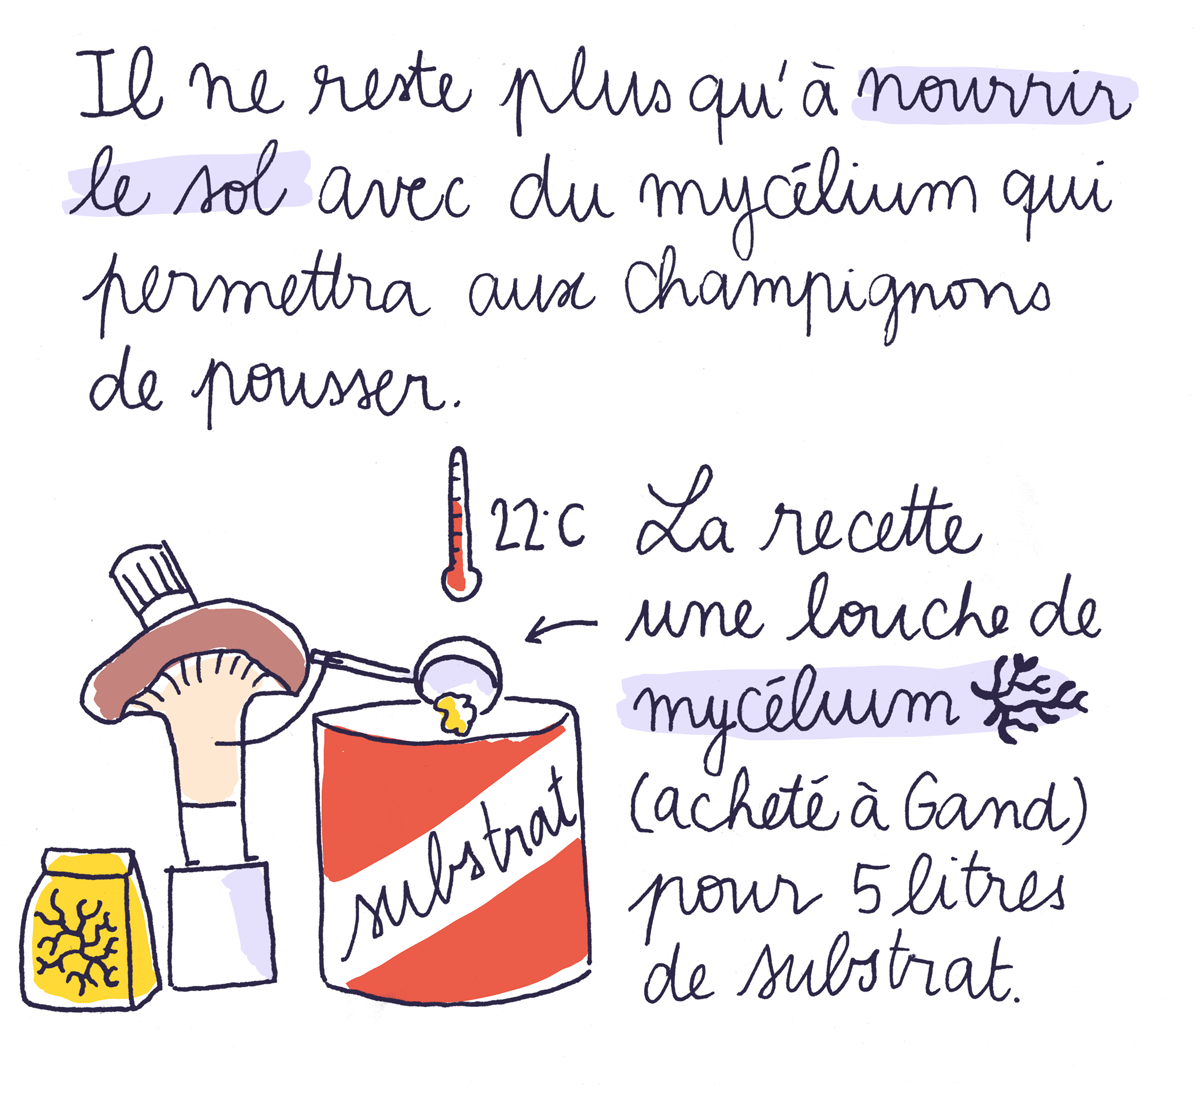 Il ne reste plus qu'à nourrir
le sol avec du mycélium qui
permettra aux champignons
de pousser.
22°C
La recette
une louche de
mycélium
(acheté à Gand)
pour 5 litres
de substrat.
substrat